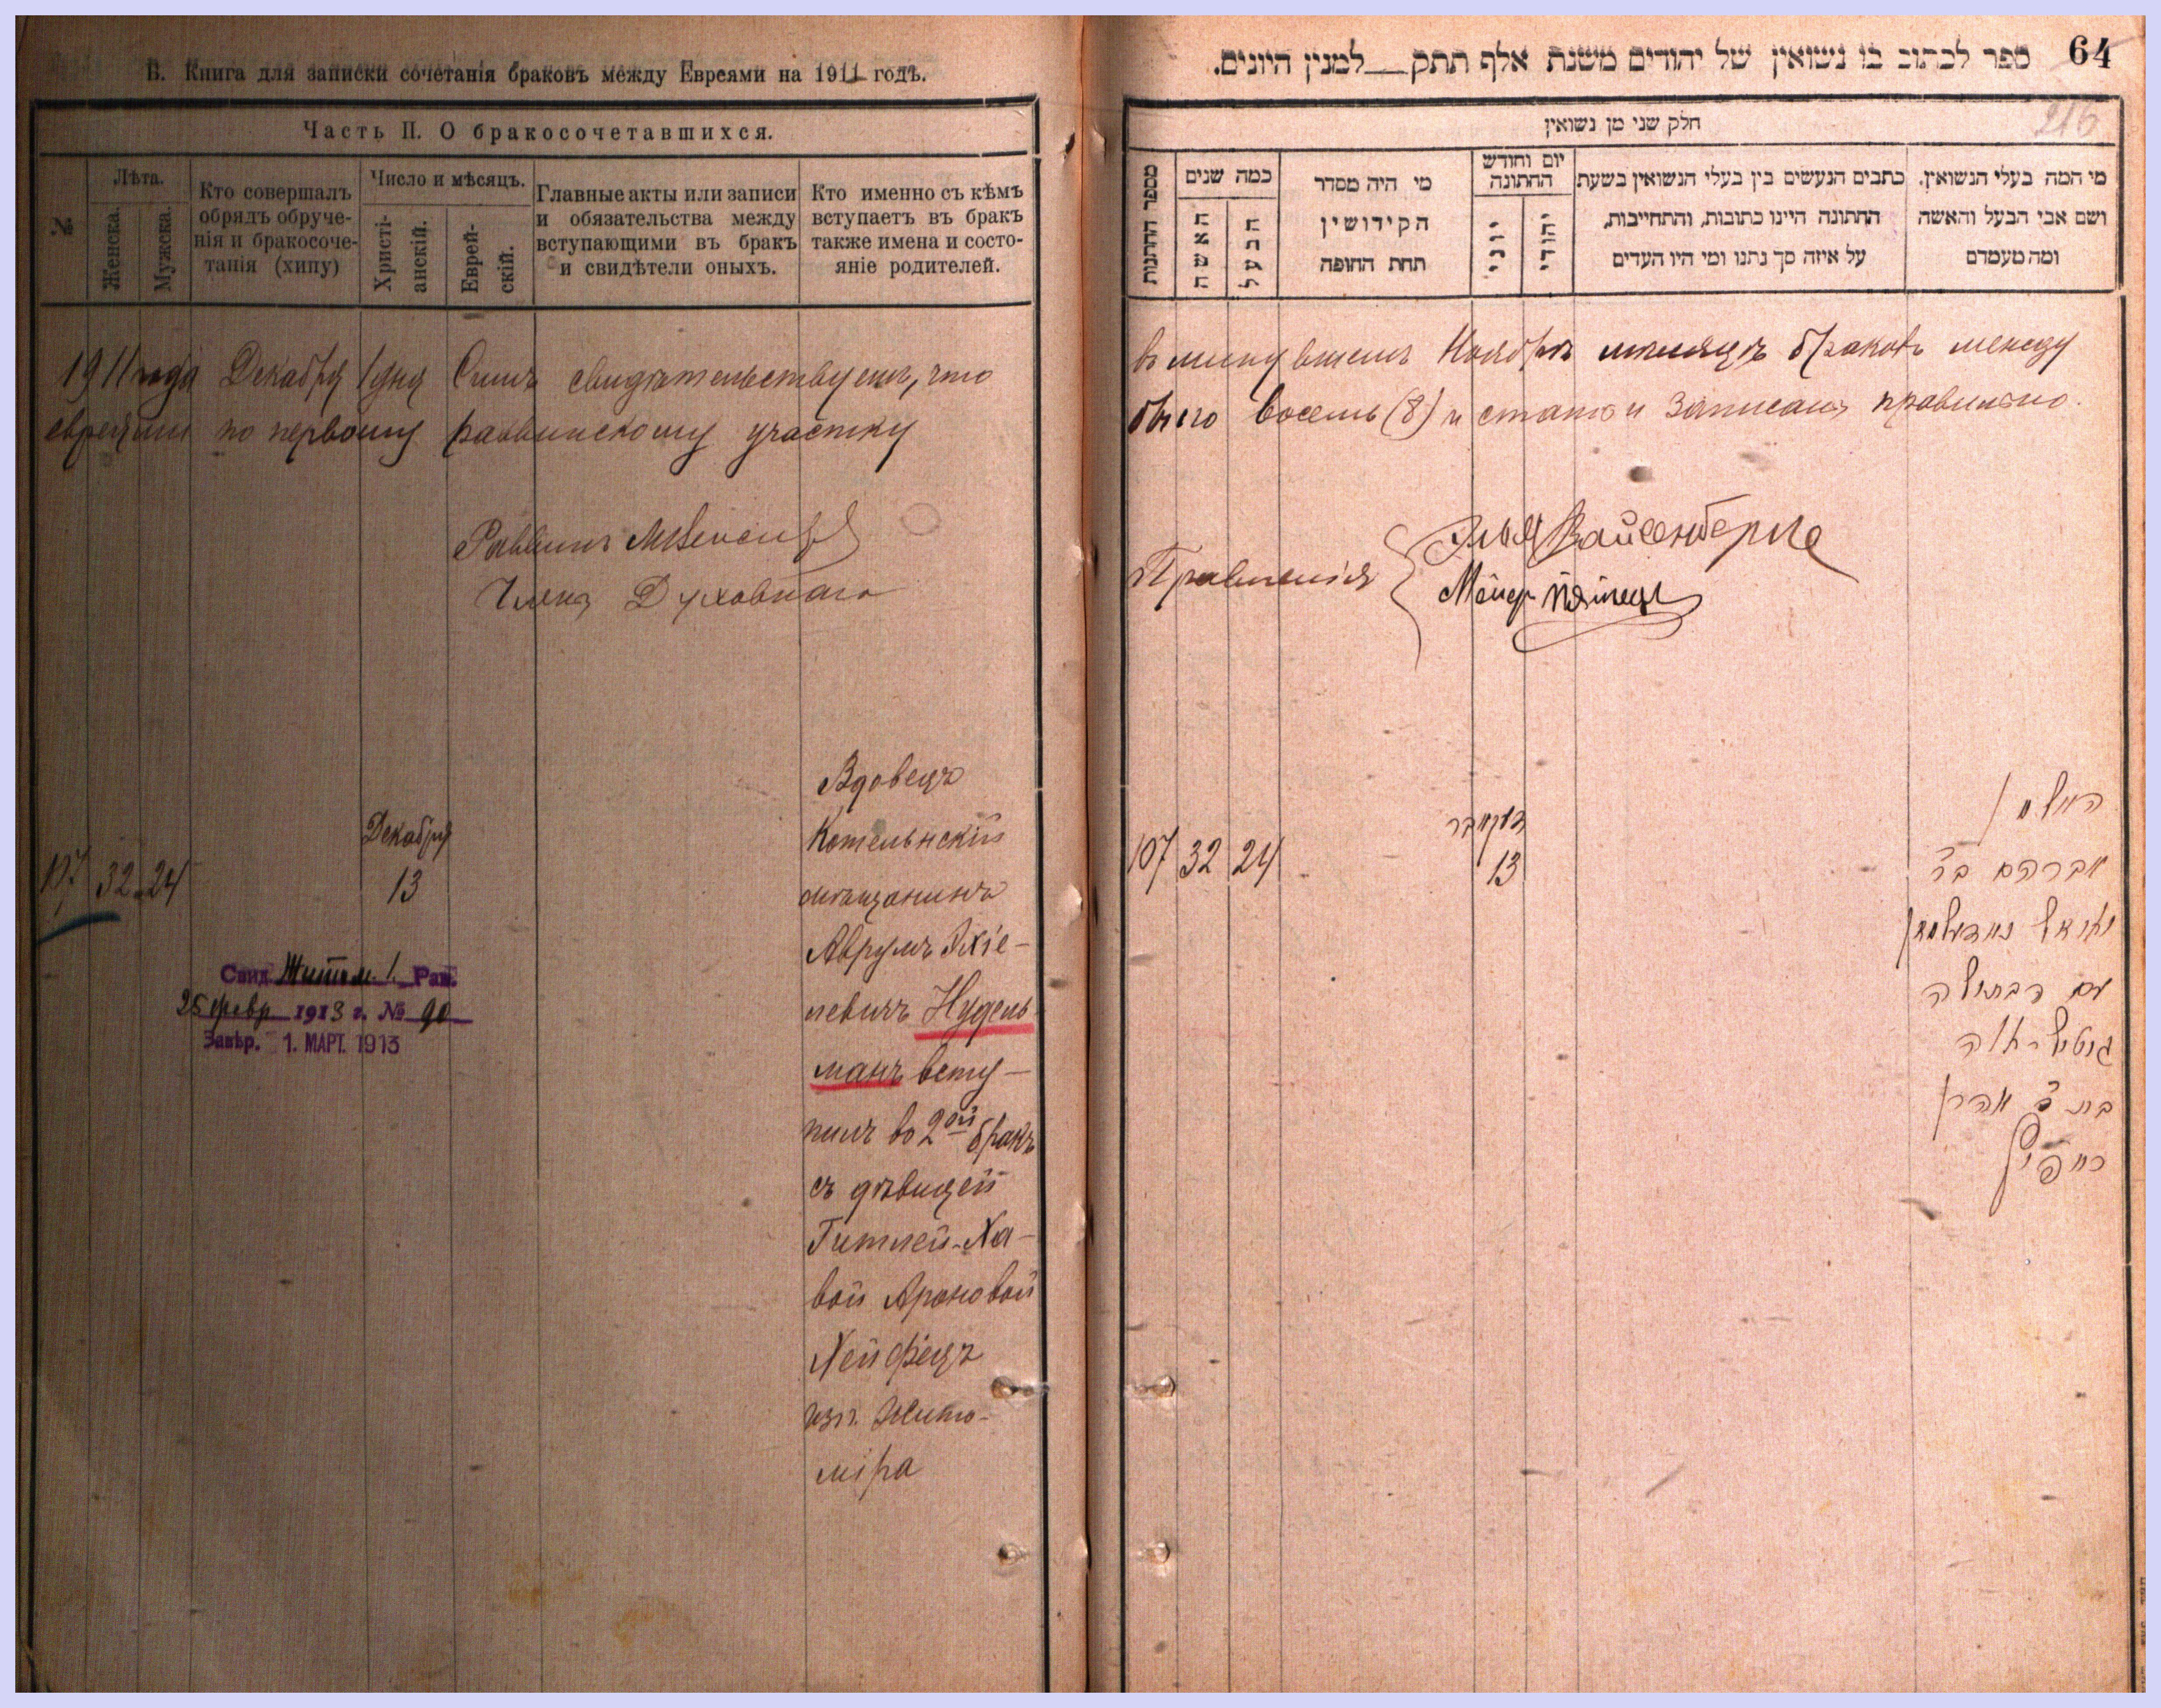 В. Книга для записки сочетанія браковъ между Евреями на 1911 годъ.
Часть II. О бракосочетавшихся.
№
Лѣта.
Женска.
Мужска.
Кто совершалъ
обрядъ обруче-
нія и бракосоче-
танія (хипу)
Число и мѣсяцъ.
Христі-
анскій.
Еврей-
скій.
Главные акты или записи
и обязательства между
вступающими въ бракъ
и свидѣтели оныхъ.
Кто именно съ кѣмъ
вступаетъ въ бракъ
также имена и состо-
яніе родителей.
1911 года Декабря 1 дня Симъ свидѣтельствуемъ, что
евреями по первому раввинскому участку
Раввинъ
Члены Духовнаго
107 32 24
Декабря
13
Вдовецъ
Котельнскій
мѣщанинъ
Аврумъ Ихіе-
левичъ Нудель
манъ всту-
пилъ во 2ой бракъ
съ дѣвицей
Гитлей-Ха-
вой Ароновой
Хейфецъ
изъ Жито-
міра
Свид. Житом. 1. Рав.
25 февр 1913 г. № 90
Завѣр. 1. МАРТ. 1913
64
ספר לכתוב בו נשואין של יהודים משנת אלף תתק למנין היונים.
216
חלק שני מן נשואין
מספר החתנות
כמה שנים
האשה
הבעל
מי היה מסדר
הקידושין
תחת החופה
יום וחודש
החתונה
יוני
יהודי
כתבים הנעשים בין בעלי הנשואין בשעת
החתונה היינו כתובות, והתחייבות,
על איזה סך נתנו ומי היו העדים
מי המה בעלי הנשואין.
ושם אבי הבעל והאשה
ומה מעמדם
въ минувшемъ Ноябрѣ мѣсяцѣ браковъ между
было восемь (8) и статьи записаны правильно.
Правленія
Вайсенберг
Меер
107 32 24
דעקאבר
13
האלמן
אברהם בר
יחיאל נודעלמאן
עם הבתולה
גיטל-חוה
בת ר אהרן
חייפיץ